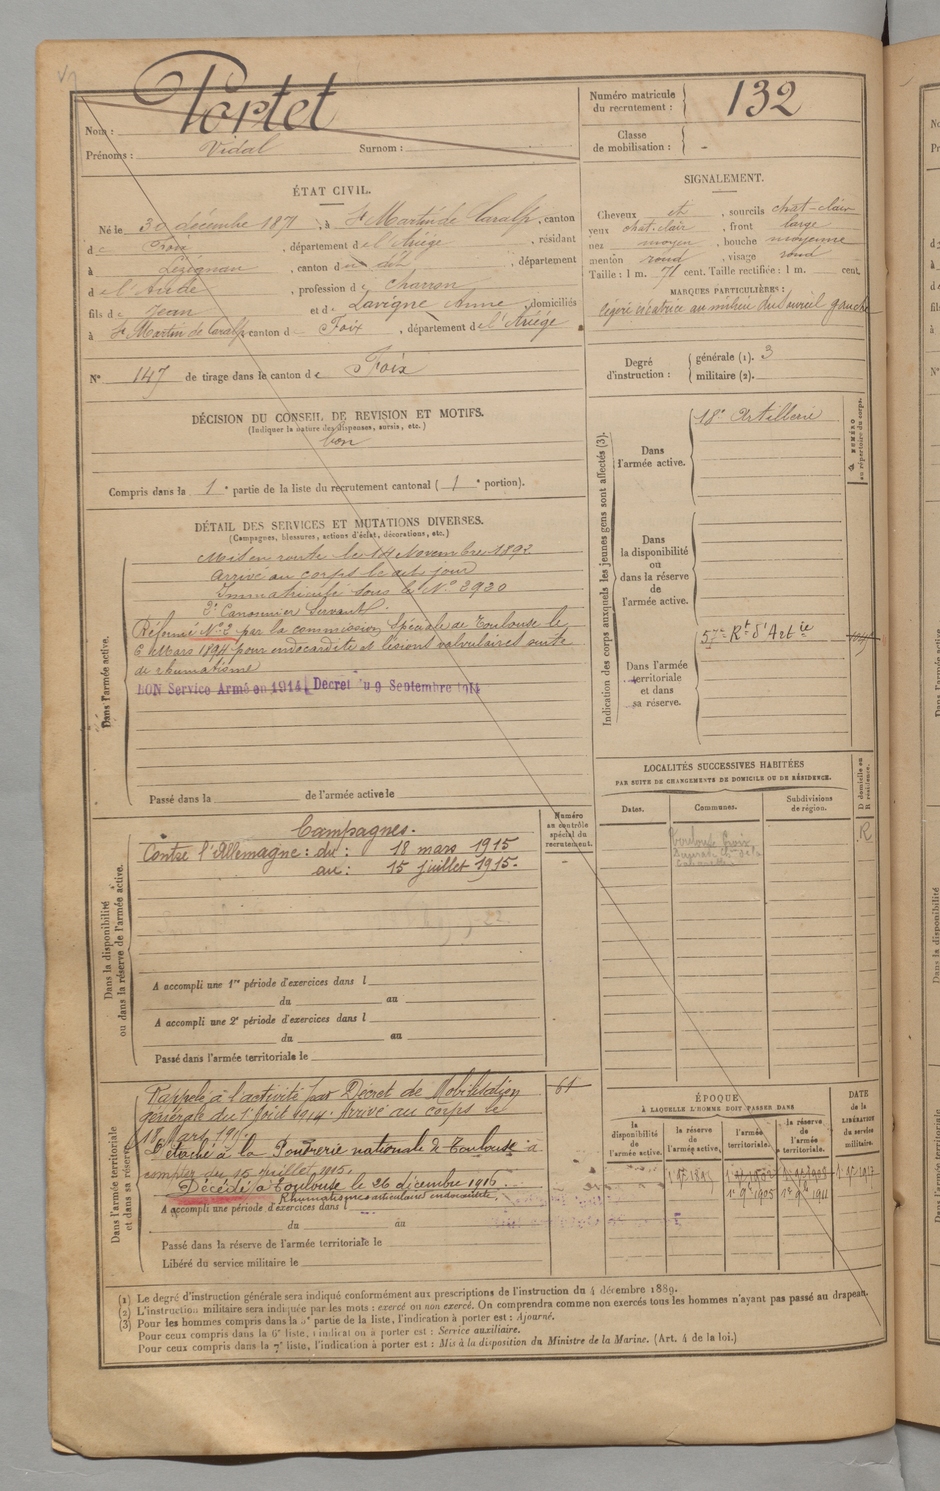 Nom : Portet
Prénoms : Vidal Surnom :
Numéro matricule du recrutement : 132
Classe de mobilisation : -
ÉTAT CIVIL.
Né le 30 décembre 1871, à St Martin de Caralp, canton
de Foix, département de l'Ariège, résidant
à Lézignan, canton du dit, département
de l'Aude, profession de charron
fils de Jean et de Lavigne Anne, domiciliés
à St Martin de Caralp canton de Foix, département de l'Ariège
N° 147 de tirage dans le canton de Foix
SIGNALEMENT.
Cheveux et, sourcils chat-clair
yeux chat. clair, front large
nez moyen, bouche moyenne
menton rond, visage rond
Taille : 1 m. 71 cent. Taille rectifiée : 1 m. cent.
MARQUES PARTICULIÈRES :
légère cicatrice au milieu du sourcil gauche
Degré d'instruction : générale (1). 3
militaire (2).
DÉCISION DU CONSEIL DE REVISION ET MOTIFS.
(Indiquer la nature des dispenses, sursis, etc.)
bon
Compris dans la 1e partie de la liste du recrutement cantonal ( 1e portion).
DÉTAIL DES SERVICES ET MUTATIONS DIVERSES.
(Campagnes, blessures, actions d'éclat, décorations, etc.)
Dans l'armée active.
Mis en route le 14 Novembre 1892
Arrivé au corps le dit jour
Immatriculé sous le N° 3920
2e Canonnier Servant.
Réformé N° 2 par la commission spéciale de Toulouse le
6 Mars 1894 pour endocardite et lésions valvulaires suite
de rhumatisme
BON Service Armé en 1914 Decret du 9 Septembre 1914
Passé dans la de l'armée active le
Indication des corps auxquels les jeunes gens sont affectés (3).
Dans l'armée active. 18e Artillerie
NUMÉRO au répertoire du corps.
Dans la disponibilité ou dans la réserve de l'armée active.
Dans l'armée territoriale et dans sa réserve. 57me Rt d'Artie
LOCALITÉS SUCCESSIVES HABITÉES
PAR SUITE DE CHANGEMENTS DE DOMICILE OU DE RÉSIDENCE.
Dates. Communes. Subdivisions de région. D domicile ou R résidence.
Toulouse
R
Dans la disponibilité ou dans la réserve de l'armée active.
Numéro au contrôle spécial du recrutement.
-
Campagnes.
Contre l'Allemagne : du : 18 mars 1915
au : 15 juillet 1915.
A accompli une 1re période d'exercices dans l
du au
A accompli une 2e période d'exercices dans l
du au
Passé dans l'armée territoriale le
Dans l'armée territoriale et dans sa réserve.
Rappelé à l'activité par Décret de Mobilisation 61
générale du 1er Août 1914. Arrivé au corps le
18 Mars 1915
Détaché à la Poudrerie nationale de Toulouse à
compter du 15 juillet 1915.
Décédé à Toulouse le 26 décembre 1916.
Rhumatisme articulaire endocardite,
A accompli une période d'exercices dans l
du au
Passé dans la réserve de l'armée territoriale le
Libéré du service militaire le
ÉPOQUE
À LAQUELLE L'HOMME DOIT PASSER DANS
la disponibilité de l'armée active. la réserve de l'armée active. l'armée territoriale. la réserve de l'armée territoriale. DATE de la LIBÉRATION du service militaire.
1er 9bre 1905 1er 9bre 1911
(1) Le degré d'instruction générale sera indiqué conformément aux prescriptions de l'instruction du 4 décembre 1889.
(2) L'instruction militaire sera indiquée par les mots : exercé ou non exercé. On comprendra comme non exercés tous les hommes n'ayant pas passé au drapeau.
(3) Pour les hommes compris dans la 5e partie de la liste, l'indication à porter est : Ajourné.
Pour ceux compris dans la 6e liste, l'indication à porter est : Service auxiliaire.
Pour ceux compris dans la 7e liste, l'indication à porter est : Mis à la disposition du Ministre de la Marine. (Art. 4 de la loi.)